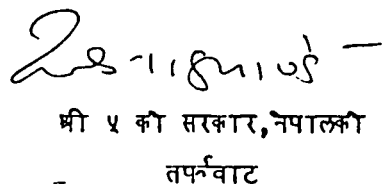 श्री ५ को सरकार, नेपालको
तर्फवाट